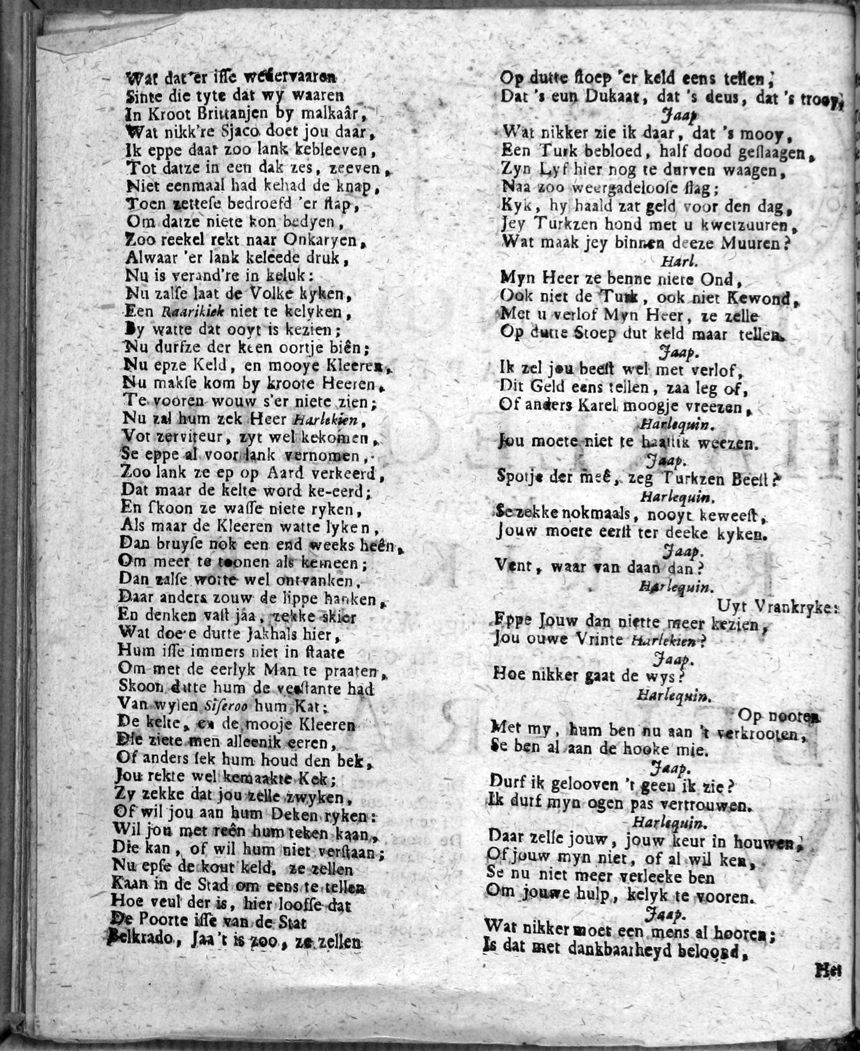 Wat dat'er isse wedervaaren
Sinte die tyte dat wy waaren
In Kroot Brittanjen by malkaâr,
Wat nikk're Sjaco doet jou daar,
Ik eppe daar zoo lank kebleeven,
Tot datze in een dak zes, zeeven,
Niet eenmaal had kehad de knap,
Toen zettese bedroefd 'er stap,
Om datze niete kon bedyen,
Zoo reekel rekt naar Onkaryen,
Alwaar 'er lank keleede druk,
Nu is verand're in keluk:
Nu zalse laat de Volke kyken,
Een Raarikiek niet te kelyken,
By watte dat ooyt is kezien;
Nu durfze der keen oortje biên;
Nu epze Keld, en mooye Kleeren,
Nu makse kom by kroote Heeren,
Te vooren wouw s'er niete zien;
Nu zal hum zek Heer Harlekien,
Vot zerviteur, zyt wel kekomen,
Se eppe al voor lank vernomen,
Zoo lank ze ep op Aard verkeerd,
Dat maar de kelte word ke-eerd;
En skoon ze wasse niete ryken,
Als maar de Kleeren watte lyken,
Dan bruyse nok een end weeks heên,
Om meer te toonen als kemeen;
Dan zalse wotte wel ontvanken,
Daar anders zouw de lippe hanken,
En denken vast jâa, zekke skier
Wat doe'e dutte Jakhals hier,
Hum isse immers niet in staate
Om met de eerlyk Man te praaten,
Skoon ditte hum de verstante had
Van wylen Siseroo hum Kat;
De kelte, en de mooje Kleeren
Die ziete men alleenik eeren,
Of anders sek hum houd den bek,
Jou rekte wel kemaakte Kek;
Zy zekke dat jou zelle zwyken,
Of wil jou aan hum Deken ryken:
Wil jou met reên hum teken kaan,
Die kan, of wil hum niet verstaan;
Nu epse de kout keld, ze zellen
Kaan in de Stad om eens te tellen
Hoe veul der is, hier loosse dat
De Poorte isse van de Stat
Belkrado, Jaa't is zoo, ze zellen
Op dutte stoep 'er keld eens tellen,
Dat 's eun Dukaat, dat 's deus, dat 's trooy,
Jaap
Wat nikker zie ik daar, dat 's mooy,
Een Turk bebloed, half dood geslaagen,
Zyn Lyf hier nog te durven waagen,
Naa zoo weergadeloose slag;
Kyk, hy haald zat geld voor den dag,
Jey Turkzen hond met u kwetzuuren,
Wat maak jey binnen deeze Muuren?
Harl.
Myn Heer ze benne niete Ond,
Ook niet de Turk, ook niet Kewond,
Met u verlof Myn Heer, ze zelle
Op dutte Stoep dut keld maar tellen.
Jaap.
Ik zel jou beest wel met verlof,
Dit Geld eens tellen, zaa leg of,
Of anders Karel moogje vreezen,
Harlequin.
Jou moete niet te haastik weezen.
Jaap.
Spotje der meê, zeg Turkzen Beest?
Harlequin.
Se zekke nokmaals, nooyt keweest,
Jouw moete eerst ter deeke kyken.
Jaap.
Vent, waar van daan dan?
Harlequin.
Uyt Vrankryke:
Eppe Jouw dan niette meer kezien,
Jou ouwe Vrinte Harlekien?
Jaap.
Hoe nikker gaat de wys?
Harlequin.
Op nooten
Met my, hum ben nu aan 't verkrooten,
Se ben al aan de hooke mie.
Jaap.
Durf ik gelooven 't geen ik zie?
Ik durf myn ogen pas vertrouwen.
Harlequin.
Daar zelle jouw, jouw keur in houwen,
Of jouw myn niet, of al wil ken,
Se nu niet meer verleeke ben
Om jouwe hulp, kelyk te vooren.
Jaap.
Wat nikker moet een mens al hooren;
Is dat met dankbaarheyd beloond,
Het